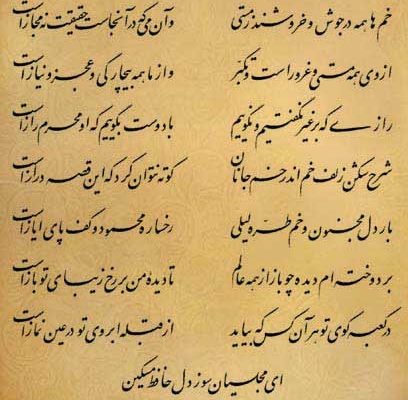 خم ها همه در جوش و خروشند ز مستی وآن می که در آنجاست حقیقت نه مجاز است
از وی همه مستی و غرور است و تکبر وز ما همه بیچارگی و عجز و نیاز است
رازی که بر غیر نگفتیم و نگوییم با دوست بگوییم که او محرم راز است
شرح شکن زلف خم اندر خم جانان کوته نتوان کرد که این قصه دراز است
بار دل مجنون و خم طره لیلی رخساره محمود و کف پای ایاز است
بردوخته ام دیده چو باز از همه عالم تا دیده من بر رخ زیبای تو باز است
در کعبه کوی تو هر آن کس که بیاید از قبله ابروی تو در عین نماز است
ای مجلسیان سوز دل حافظ مسکین